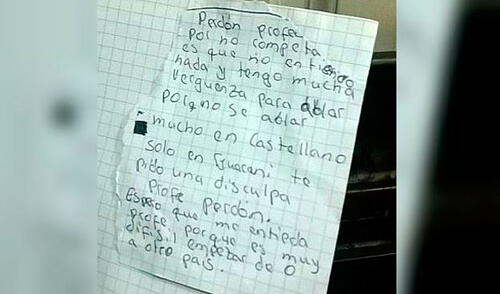 Perdón profe
por no completa
es que no entiendo
nada y tengo mucha
verguenza para ablar
porqno se ablar
mucho en Castellano
solo en Guarani te
pido una disculpa
profe perdón.
Espero que me entieda
profe porque es muy
difisil empezar de 0
a otro pais.